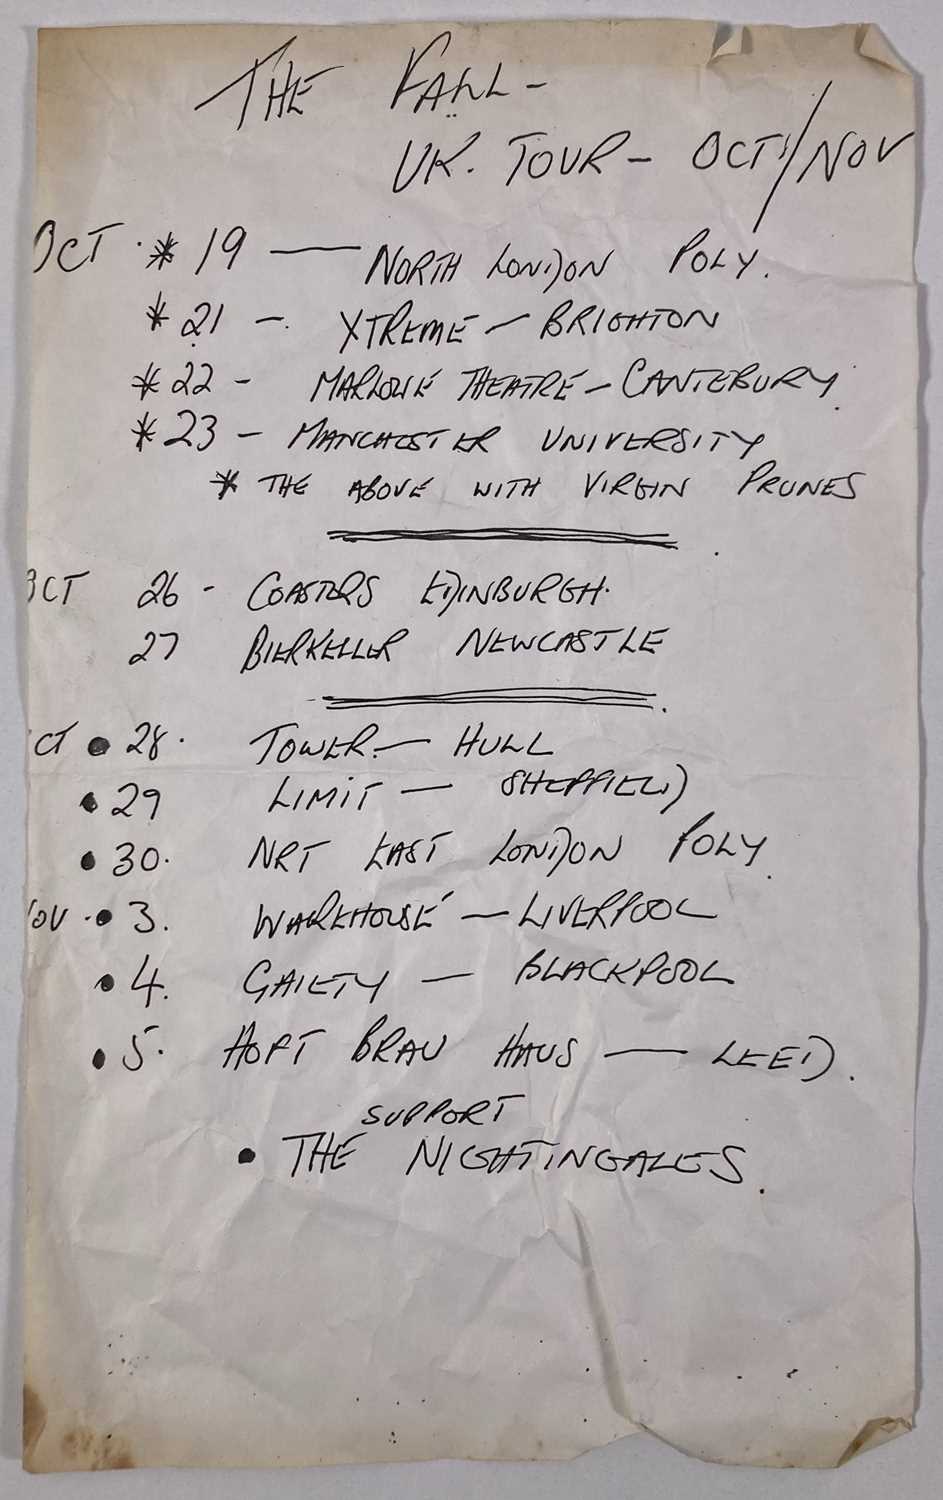 THE FALL -
UK. TOUR - OCT/NOV
OCT * 19 — NORTH LONDON POLY.
* 21 - XTREME - BRIGHTON
* 22 - MARLOWE THEATRE - CANTEBURY.
* 23 - MANCHESTER UNIVERSITY
* THE ABOVE WITH VIRGIN PRUNES
OCT 26 - COASTERS EDINBURGH.
27 BIERKELLER NEWCASTLE
CT • 28. TOWER - HULL
• 29 LIMIT - SHEFFIELD
• 30. NRT EAST LONDON POLY.
OV • 3. WAREHOUSE - LIVERPOOL
• 4. GAIETY - BLACKPOOL
• 5. HOFT BRAU HAUS — LEED.
SUPPORT
• THE NIGHTINGALES.